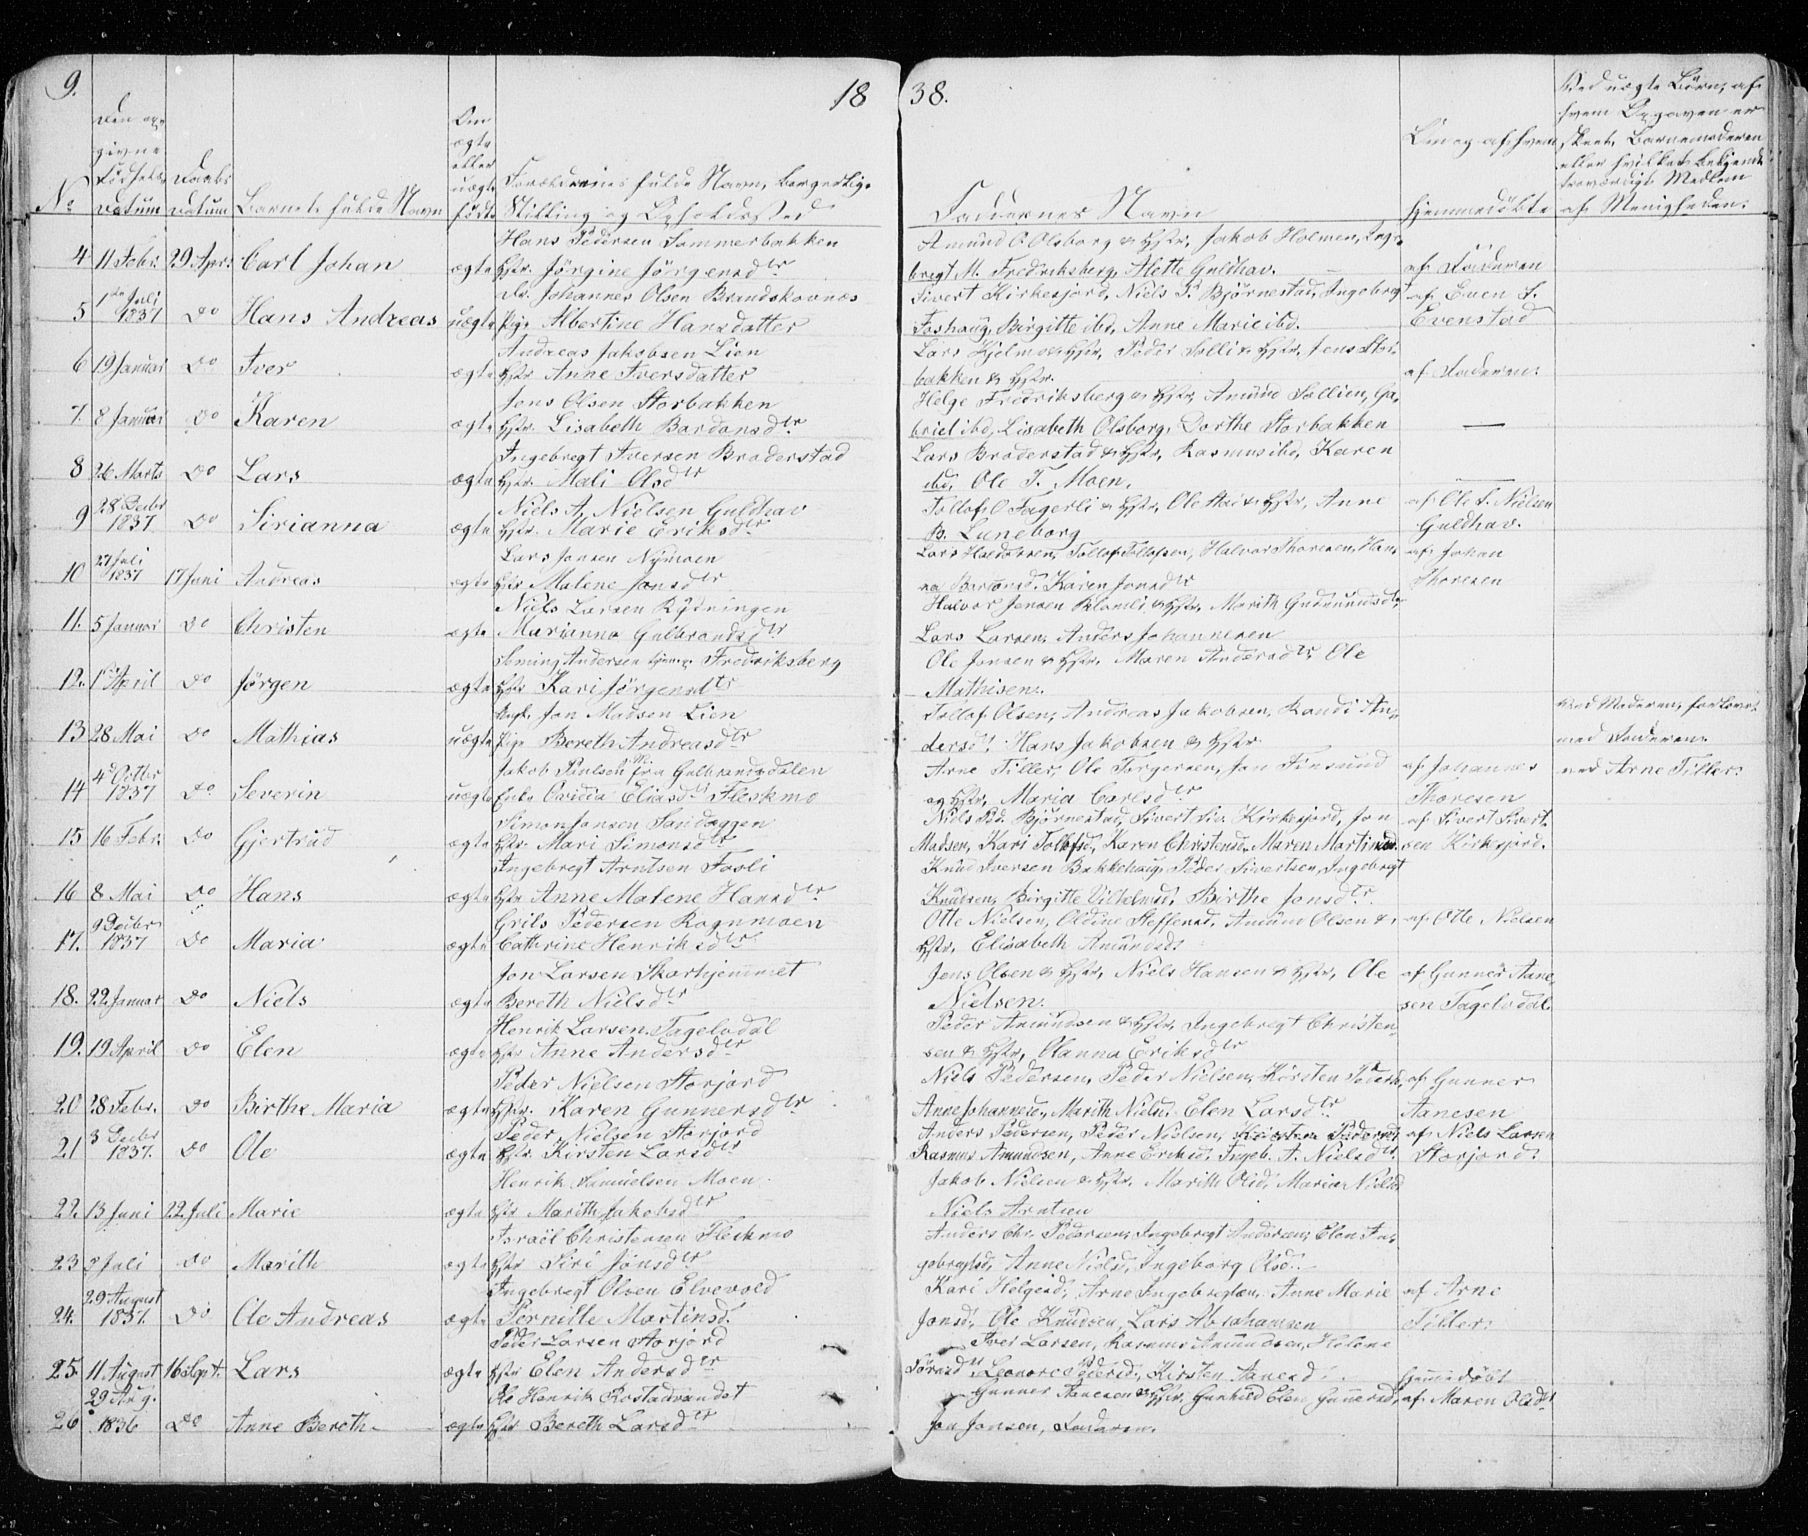 9.
18
38.
Den an-
givne
Födsels
Datum
Daabs
Datum
No
Barnets fulde Navn
Om
ægte
eller
uægte
födt
Forældrenes fulde Navn, borgerlige
Stilling og Opholdssted
Faddernes Navn
Om og af hvem
hjemmedöbte
Ved uægte Börn, af
hvem Opgaven er
skeet, Barnemoderen
eller hvilket bekjendt
troværdigt Medlem
af Menigheden.
4 11 Febr. 29 Apr. Carl Johan ægte Hans Pedersen Sommerbakken
Hstr. Jörgine Jörgensdtr
Amund O. Olsborg & Hstr, Jakob Holmen, Inge-
bregt M. Fredriksberg, Alette Guldhav.
af Faderen
5 1ste Juli 1837 Do Hans Andreas uægte Johannes Olsen Brandskovnæs
Pige Albertine Hansdatter
Sivert Kirkesjord, Niels P. Björnestad, Ingeborg
Foshaug, Birgitte ibd, Anne Marie ibd.
af Even S.
Evenstad
6 19 Januar Do Iver ægte Andreas Jakobsen Lien
Hstr Anne Iversdatter
Lars Hjelmo & Hstr, Peder Solli & Hstr, Jens Stor-
bakken & Hstr.
af Faderen.
7. 8 Januar Do Karen ægte Jens Olsen Storbakken
Hstr. Lisabeth Bardonsdtr
Helge Fredriksberg & Hstr, Amund Sollien, Ga-
briel ibd, Lisabeth Olsborg, Dorthe Storbakken
—
8 26 Marts Do Lars ægte Ingebregt Iversen Broderstad
Hstr. Mali Olsdtr
Lars Broderstad & Hstr, Rasmus ibd, Karen
ibd, Ole T. Moen.
—
9 28 Decbr 1837. Do Sirianna ægte Niels A. Nielsen Guldhav
Hstr. Marie Eriksdtr
Tollof O Fagerli & Hstr, Ole Moe & Hstr, Anne
B. Luneborg
af Ole S. Nielsen
Guldhav.
10 27 Juli 1837 17 Juni Andreas ægte Lars Jonsen Nymoen
Hstr Malene Jonsdtr
Lars Haldorsen, Tollof Tollofsen, Halvor Thoresen, Han-
na Karen Jonsdtr
af Johan
Thoresen
11. 5 Januar Do Christen ægte Niels Larsen Rydningen
Marianna Gulbrandsdtr
Halvor Jensen Blomli & Hstr, Marith Gudmundsdtr
Lars Larsen, Anders Johannesen
12. 1 April Do Jörgen ægte Seming Andersen Fredriksberg
Hstr Kari Jörgensdtr
Ole Jonsen & Hstr, Maren Andersdtr, Ole
Mathisen.
13 28 Mai Do Mathias uægte Ungk. Jon Madsen Lien
Pige Bereth Andreasdtr
Tollof Olsen, Andreas Jakobsen, Randi An-
dersd. Hans Jakobsen & Hstr
ved Moderen, forlovet
med Faderen.
14 4 Octbr 1837 Do Severin uægte Jakob Paulsen fra Gulbrandsdalen
Enke Ovidia Eliasd. Fleskmo
Arne Tiller, Ole Torgersen, Jon Finsund
og Hstr, Maria Carlsdtr
af Johannes
Thoresen
ved Arne Tiller.
15 16 Febr. Do Gjertrud ægte Simon Jonsen Sandeggen
Hstr Mari Simonsdtr
Niels Ped. Björnestad, Sivert Siv. Kirkesjord, Jon
Madsen, Kari Tollofsd, Karen Christensd, Maren Martinusd.
af Sivert Sivert-
sen Kirkesjord.
16 8 Mai Do Hans ægte Ingebregt Arntsen Fosli
Hstr Anne Malene Hansdtr
Knud Iversen Bakkehaug, Peder Sivertsen, Ingebregt
Knudsen, Birgitte Vilhelmsd, Birthe Jonsdtr.
17. 9 Decbr 1837 Do Maria ægte Grils Pedersen Rognmoen
Cathrine Henriksdtr
Otte Nielsen, Oldine Steffensd, Amund Olsen &
Hstr, Elisabeth Amundsd.
af Otte Nielsen
18. 22 Januar Do Niels ægte Jon Larsen Skarhjemmet
Bereth Nielsdtr
Jens Olsen & Hstr, Niels Hansen & Hstr, Ole
Nielsen.
af Gunner Aane-
sen Fagelvdal.
19. 19 April Do Elen ægte Henrik Larsen Fagelvdal
Hstr Anne Andersdtr
Peder Amundsen & Hstr, Ingebregt Christen-
sen & Hstr, Olanna Eriksdtr
20 28 Febr. Do Birthe Maria ægte Peder Nielsen Storjord
Hstr. Karen Gunnersdtr
Niels Pedersen, Peder Nielsen, Kirsten Pedersd,
Anne Johannesd, Marith Nielsd. Elen Larsdtr
af Gunner
Aanesen
21 3 Decbr 1837. Do Ole ægte Peder Nielsen Storjord
Hstr. Kirsten Larsdtr
Anders Pedersen, Peder Nielsen, Kirsten Pedersd.
Rasmus Amundsen, Anne Eriksd. Ingeb. A. Nielsdtr.
af Niels Larsen
Storjord.
22. 13 Juni 22 Juli Marie ægte Henrik Samuelsen Moen
Hstr Marith Jakobsdtr
Jakob Nielsen & Hstr. Marith Olsd. Maria Nielsd
Niels Arntsen
23 2 Juli Do Marith ægte Israël Christensen Fleskmo
Hstr Siri Jonsdtr
Anders Chr. Pedersen, Ingebregt Andersen, Elen In-
gebregtsd, Anne Nielsd, Ingeborg Olsd.
24. 29 August 1837. Do Ole Andreas ægte Ingebregt Olsen Elvevold
Pernille Martinsd.
Kari Helgesd, Arne Ingebregtsen, Anne Marie
Jonsd, Ole Knudsen, Lars Abrahamsen
af Arne
Tiller.
25. 11 August 16 Sept. Lars ægte Peder Larsen Storjord
Hstr Elen Andersdtr
Iver Larsen, Rasmus Amundsen, Helene
Leonore Pedersd, Kirsten Aanesd.
hjemmedöbt
26 29 Aug. 1836 Do Anne Bereth ægte Ole Henrik Rostadvandet
Hstr Bereth Larsdtr
Gunner Aanesen & Hstr, Gunhild Elen Gunnersd,
Jon Jonsen, Faderen.
af Maren Olsdtr